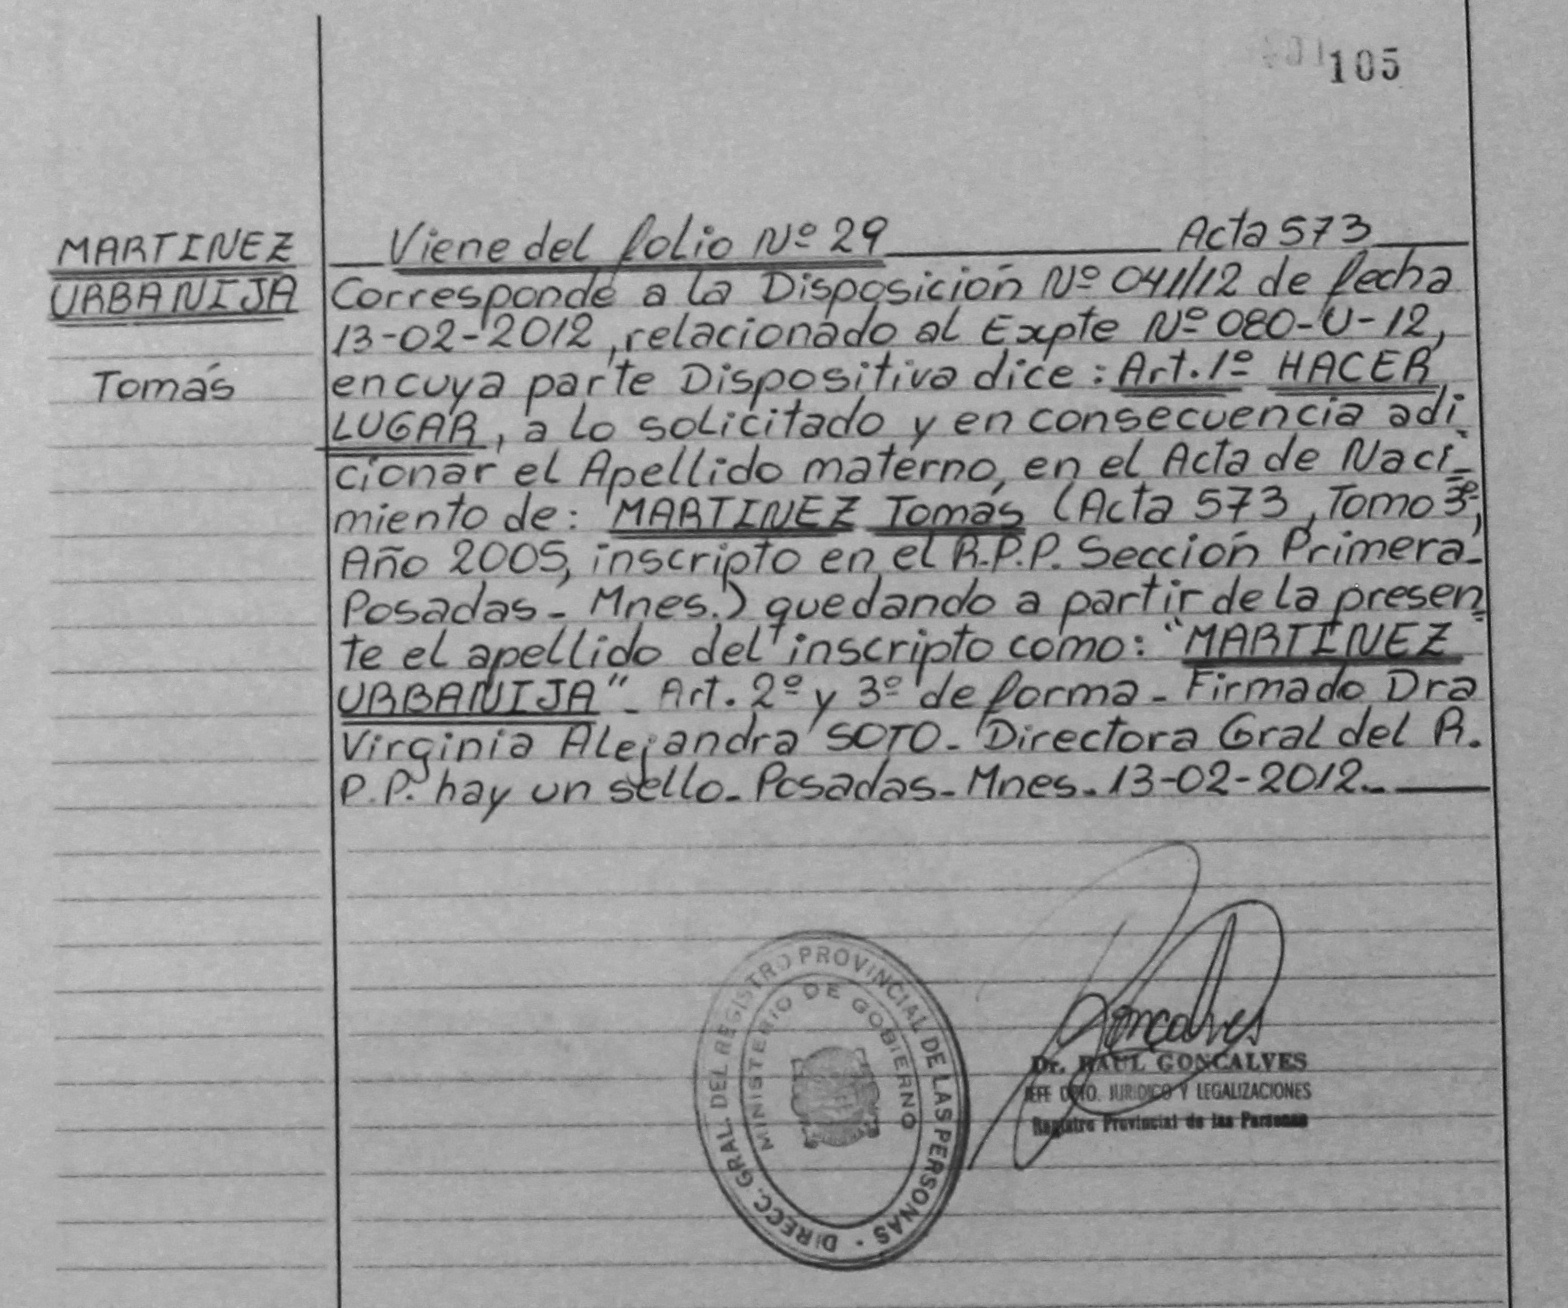 105
MARTINEZ
URBANIJA
Tomás
Viene del folio Nº 29 Acta 573
Corresponde a la Disposición Nº 041/12 de fecha
13-02-2012, relacionado al Expte Nº 080-U-12,
en cuya parte Dispositiva dice: Art. 1º HACER
LUGAR, a lo solicitado y en consecuencia adi
cionar el Apellido materno, en el Acta de Naci-
miento de: MARTINEZ Tomás (Acta 573, Tomo 3º,
Año 2005, inscripto en el R.P.P. Sección Primera-
Posadas- Mnes.) quedando a partir de la presen
te el apellido del inscripto como: "MARTINEZ
URBANIJA"- Art. 2º y 3º de forma- Firmado Dra
Virginia Alejandra SOTO- Directora Gral del R.
P.P. hay un sello- Posadas- Mnes- 13-02-2012.-
DIRECC. GRAL. DEL REGISTRO PROVINCIAL DE LAS PERSONAS -
MINISTERIO DE GOBIERNO
Goncalves
Dr. RAUL GONCALVES
JEFE DPTO. JURIDICO Y LEGALIZACIONES
Registro Provincial de las Personas